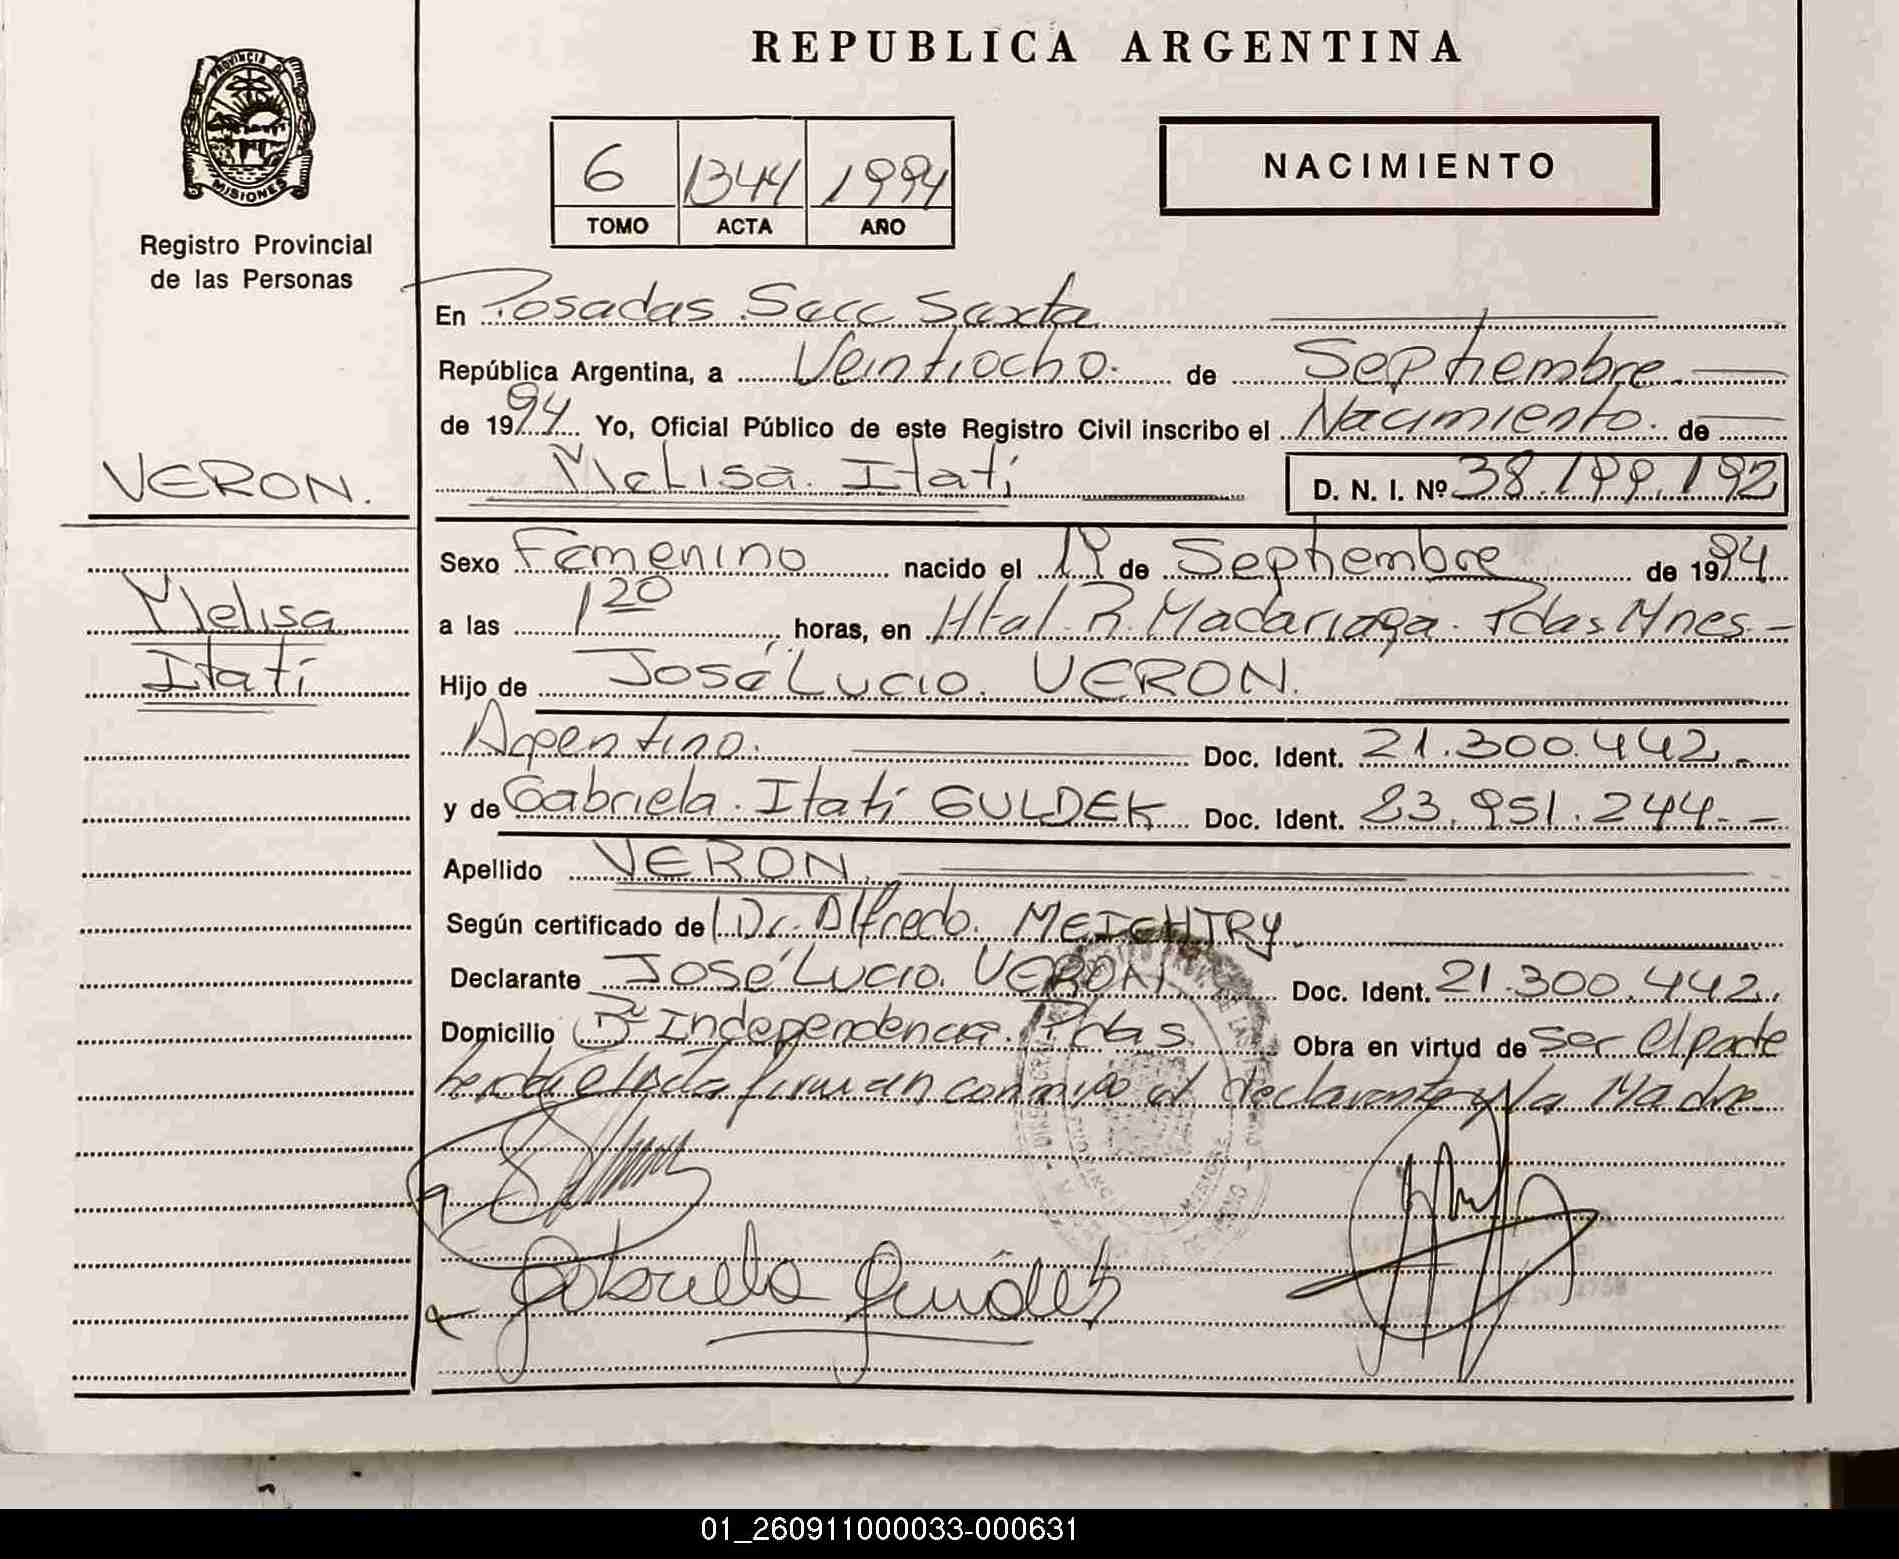 REPUBLICA ARGENTINA
PROVINCIA DE
MISIONES
Registro Provincial
de las Personas
6 1344 1994
TOMO ACTA AÑO
NACIMIENTO
En Posadas Secc Sexta
República Argentina, a Veintiocho. de Septiembre.
de 1994 Yo, Oficial Público de este Registro Civil inscribo el Nacimiento. de
Melisa. Itatí D. N. I. Nº 38.199.192
VERON.
Melisa
Itatí
Sexo Femenino nacido el 19 de Septiembre de 1994
a las 1 20 horas, en Htal. R. Madariaga. Pdas Mnes.-
Hijo de José Lucio. VERON.
Argentino. Doc. Ident. 21.300.442.-
y de Gabriela. Itatí GULDEK Doc. Ident. 23.951.244.--
Apellido VERON.
Según certificado de Dr. Alfredo. MEICHTRY.
Declarante José Lucio. VERON Doc. Ident. 21.300.442.
Domicilio Bº Independencia. Pdas. Obra en virtud de Ser el padre
firman conmigo el declarante y la Madre.
Gabriela
01_260911000033-000631